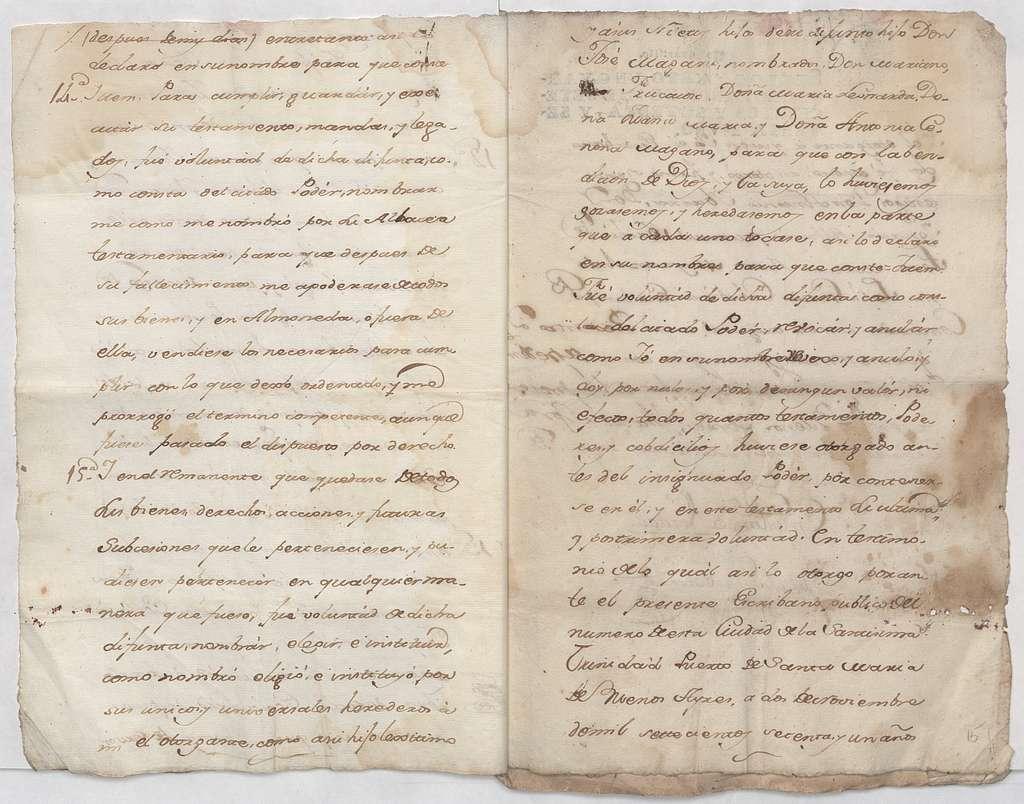 (despues de mis dias) entretanto asi lo
declaro en su nombre para que conste
14.ª Iuem. Para cumplir, guardar, y exe-
cutar su testamento, mandas, y lega-
dos, fué voluntad de dicha difunta, co-
mo consta del citado Podér, nombrar
me como me nombró por su Albacea
testamentario, para que despues de
su fallecimiento me apoderase de todos
sus bienes, y en Almoneda, o fuera de
ella, vendiese los necesarios para cum
plir con lo que dexó ordenado, y me
prorrogó el termino competente, aunque
fuese pasado el dispuesto por derecho.
15.ª I en el remanente que quedase de todos
sus bienes, derechos, acciones, y futuras
Subcesiones que le perteneciesen, y pu-
diesen pertenecér en qualquiér ma-
nera que fuese, fué voluntad de dicha
difunta, nombrár, elegir, e instituir,
como nombró eligió, e instituyó por
sus unicos y universales herederos à
mi el otorgante, como asi hijo lexitimo
y à sus Nietos hijos de su difunto hijo Don
José Magano, nombrados Don Mariano,
Don Maria Leonarda, Do-
ña Juana Maria, y Doña Antonia Ce-
Magano, para que con la ben-
dicion de Dios, y la suya, lo huviesemos
gozasemos, y heredasemos en la parte
que à cada uno tocase, asi lo declaro
en su nombre para que conste Iuem
Fué voluntad de dicha difunta como cons
ta del citado Podér, revocár, y anulár
como Yó en su nombre revoco, y anulo, y
doy por nulos, y por de ningun valór, ni
efecto, todos quantos testamentos, Pode-
res, y cobdicilios huviese otorgado an-
tes del insignuado Podér, por contener-
se en él, y en este testamento su ultima
y postrimera voluntad. En testimo-
nio de lo quál asi lo otorgo por an-
te el presente Escribano publico del
numero de esta Ciudad de la Santisima
Trinidad Puerto de Santa Maria
de Buenos Ayres, a dos de Noviembre
de mil setecientos setenta, y un años
15